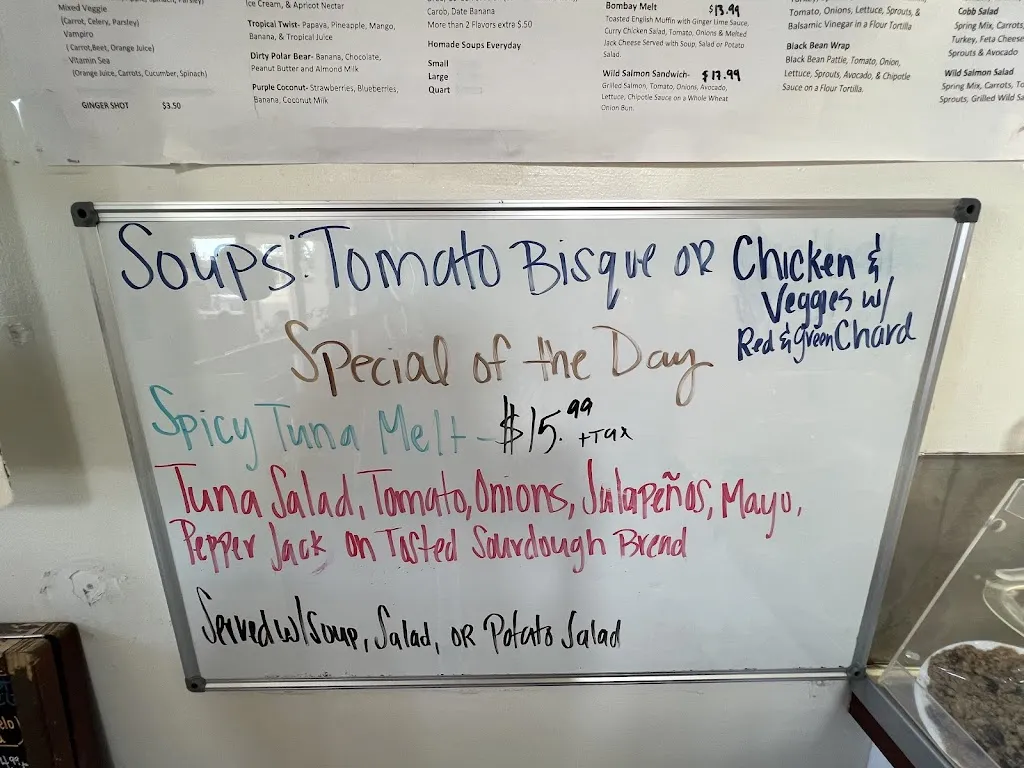 Mixed Veggie
(Carrot, Celery, Parsley)
Vampiro
(Carrot,Beet, Orange Juice)
Vitamin Sea
(Orange Juice, Carrots, Cucumber, Spinach)
GINGER SHOT $3.50
Ice Cream, & Apricot Nectar
Tropical Twist- Papaya, Pineapple, Mango,
Banana, & Tropical Juice
Dirty Polar Bear- Banana, Chocolate,
Peanut Butter and Almond Milk
Purple Coconut- Strawberries, Blueberries,
Banana, Coconut Milk
Carob, Date Banana
More than 2 Flavors extra $.50
Homade Soups Everyday
Small
Large
Quart
Bombay Melt $13.99
Toasted English Muffin with Ginger Lime Sauce,
Curry Chicken Salad, Tomato, Onions & Melted
Jack Cheese Served with Soup, Salad or Potato
Salad.
Wild Salmon Sandwich- $17.99
Grilled Salmon, Tomato, Onions, Avocado,
Lettuce, Chipotle Sauce on a Whole Wheat
Onion Bun.
Tomato, Onions, Lettuce, Sprouts, &
Balsamic Vinegar in a Flour Tortilla
Black Bean Wrap
Black Bean Pattie, Tomato, Onion,
Lettuce, Sprouts, Avocado, & Chipotle
Sauce on a Flour Tortilla.
Cobb Salad
Spring Mix, Carrots,
Turkey, Feta Cheese
Sprouts & Avocado
Wild Salmon Salad
Spring Mix, Carrots, To
Sprouts, Grilled Wild Sa
Soups: Tomato Bisque OR Chicken &
Veggies w/
Red & green Chard
Special of the Day
Spicy Tuna Melt - $15.99 +Tax
Tuna Salad, Tomato, Onions, Jalapeños, Mayo,
Pepper Jack on Tosted Sourdough Bread
Served w/ Soup, Salad, OR Potato Salad